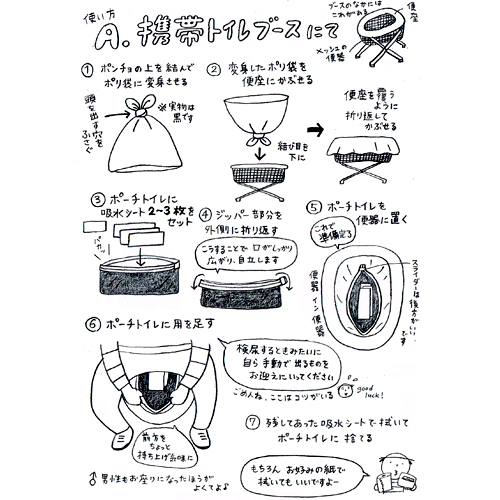 使い方
A. 携帯トイレブースにて
ブースのなかには
これがある
便座
メッシュの
便器
① ポンチョの上を結んで
ポリ袋に変身させる
頭を出す穴を
ふさぐ
※実物は
黒です
② 変身したポリ袋を
便座にかぶせる
結び目を
下に
便座を覆う
ように
折り返して
かぶせる
③ ポーチトイレに
吸水シート2〜3枚を
セット
パカッ
④ ジッパー部分を
外側に折り返す
こうすることで口がしっかり
広がり、自立します
⑤ ポーチトイレを
便器に置く
これで
準備完了
便器イン便器
スライダーは後方がいいです
⑥ ポーチトイレに用を足す
検尿するときみたいに
自ら手動で出るものを
お迎えにいってください
ごめんね、ここはコツがいる
good
luck!
前方を
ちょっと
持ち上げ気味に
♂男性もお座りになったほうが
よくてよ♪
⑦ 残してあった吸水シートで拭いて
ポーチトイレに捨てる
もちろん お好みの紙で
拭いてもいいですよー